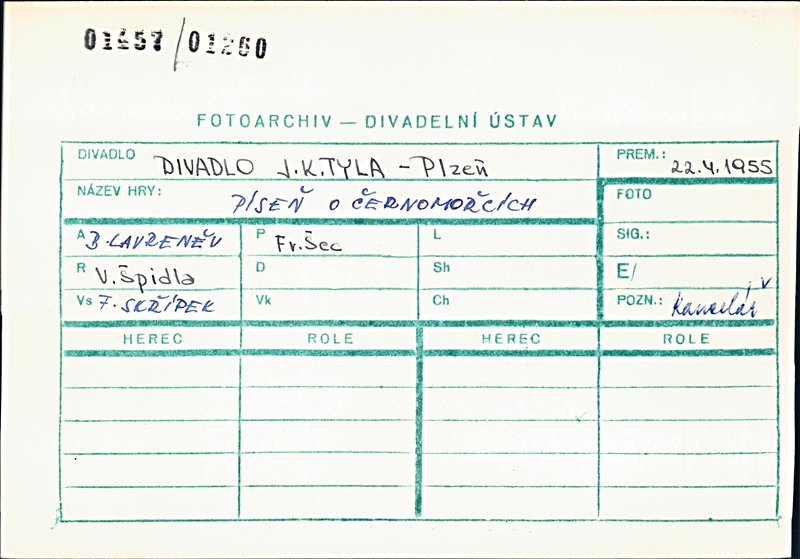 01457/01260
FOTOARCHIV — DIVADELNÍ ÚSTAV
DIVADLO DIVADLO J.K.TYLA - Plzeň
PREM.: 22.4.1955
NÁZEV HRY: PÍSEŇ O ČERNOMOŘCÍCH
FOTO
A B. LAVRENĚV P Fr. Šec L SIG.:
R V. Špidla D Sh E/
Vs F. SKŘÍPEK Vk Ch POZN.: Kancelář
HEREC ROLE HEREC ROLE